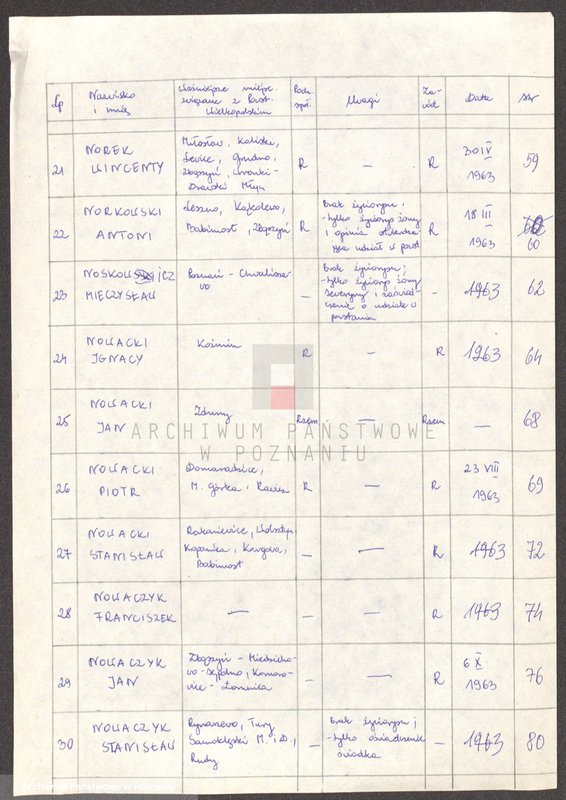 Lp
Nazwisko
i imię
Ważniejsze miejsc.
związane z Powst.
Wielkopolskim
Poch.
społ.
Uwagi
Za-
wód
Data
str
21
NOREK
WINCENTY
Miłosław, Kaliska,
Grudna,
Zbąszyń, Wronki-
Młyn
R
—
R
30 IV
1963
59
22
NORKOWSKI
ANTONI
Leszno, Kąkolewo,
Babimost, Zbąszyń
R
Brak życiorysu;
-tylko życiorys żony
i opinia
udział w powst
R
18 III
1963
60
60
23
NOSKOW ICZ
MIECZYSŁAW
Poznań - Chwalisze-
wo
—
Brak życiorysu;
-tylko życiorys żony
Seweryny i zaświad-
czenie o udziale w
powstaniu
-
1963
62
24
NOWACKI
IGNACY
Koźmin
R
—
R
1963
64
25
NOWACKI
JAN
Zduny
Rzem
—
Rzem
—
68
26
NOWACKI
PIOTR
Domaradzice,
M. Górka, Rawicz
R
—
R
23 VIII
1963
69
27
NOWACKI
STANISŁAW
Rakoniewice, Wolsztyn,
Kopanica, Kargowa,
Babimost
—
—
R
1963
72
28
NOWACZYK
FRANCISZEK
—
—
—
R
1963
74
29
NOWACZYK
JAN
Zbąszyń - Miedzicho-
wo - Komoro-
wice - Łomnica
—
—
R
6 X
1963
76
30
NOWACZYK
STANISŁAW
Rynarzewo, Tury,
Samoklęski M. i D.,
Rudy
—
Brak życiorysu;
-tylko oświadczenie
świadka
-
1963
80
ARCHIWUM PAŃSTWOWE
W POZNANIU